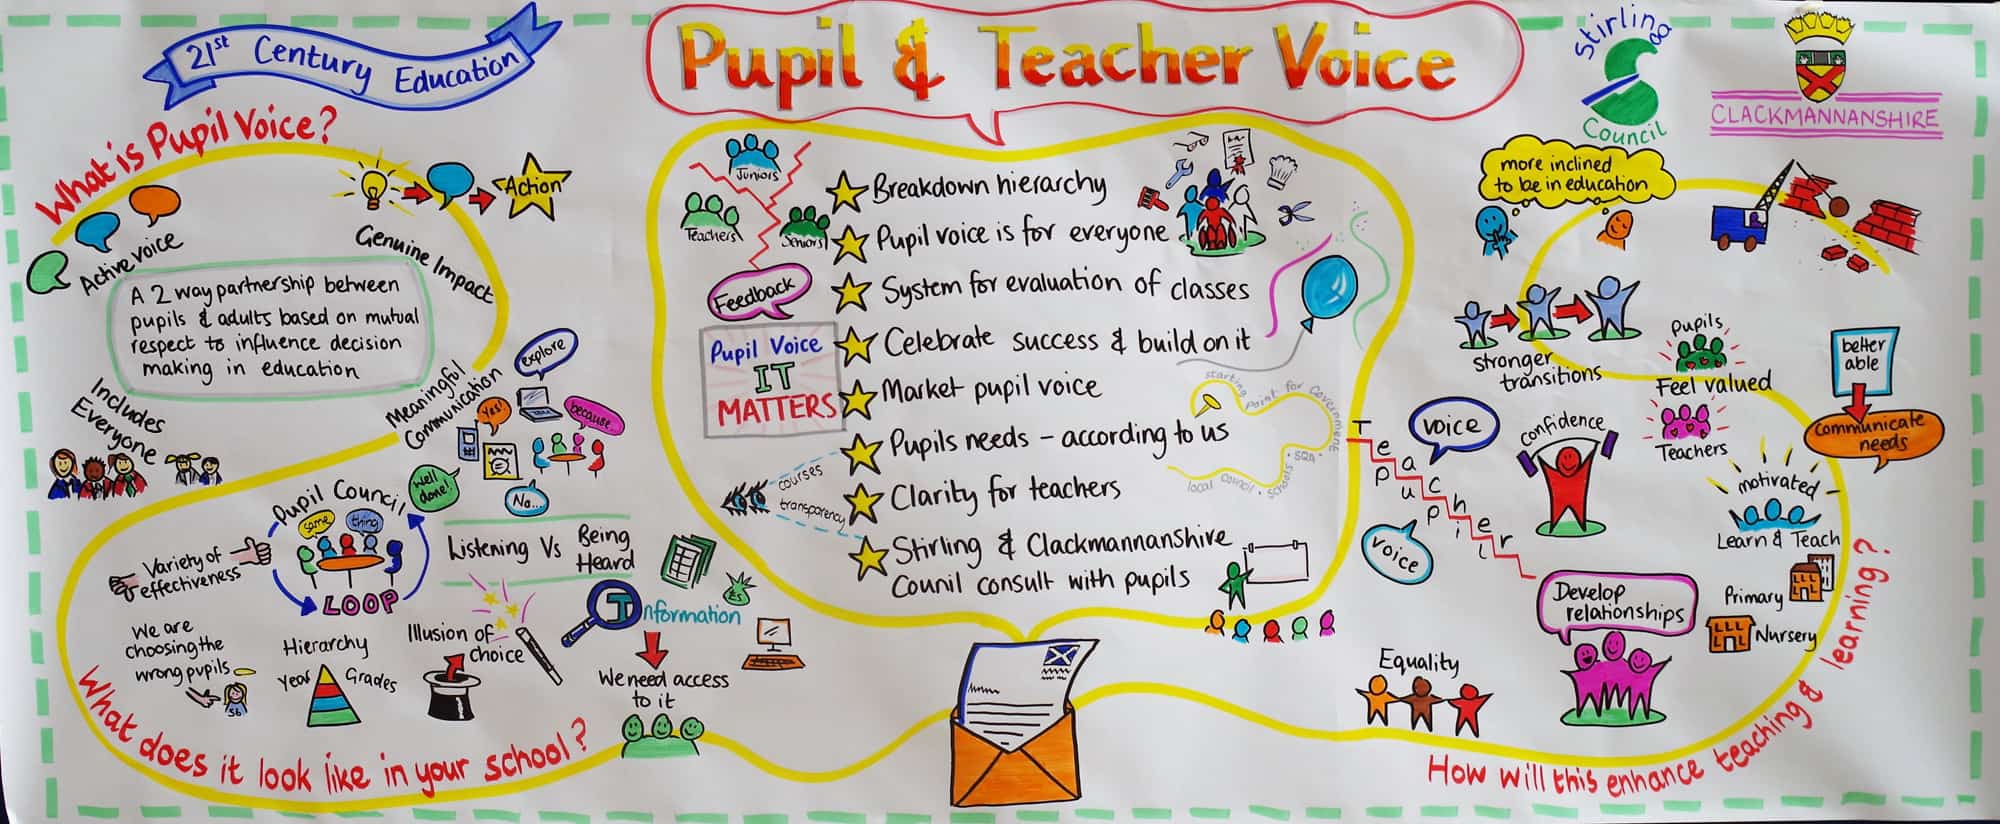 21st Century Education
Pupil & Teacher Voice
Stirling
Council
CLACKMANNANSHIRE
What is Pupil Voice?
Active Voice
Action
Genuine Impact
A 2 way partnership between
pupils & adults based on mutual
respect to influence decision
making in education
Includes
Everyone
Meaningful
Communication
explore
Yes!
because...
Well
done!
No...
Pupil Council
same
thing
LOOP
Variety of
effectiveness
Listening Vs Being
Heard
We are
choosing the
wrong pupils
S6
Hierarchy
Year
Grades
Illusion of
choice
Information
£s
We need access
to it
What does it look like in your school?
Juniors
Teachers
Seniors
Feedback
Pupil Voice
IT
MATTERS
courses
transparency
Breakdown hierarchy
Pupil voice is for everyone
System for evaluation of classes
Celebrate success & build on it
Market pupil voice
Pupils needs – according to us
Clarity for teachers
Stirling & Clackmannanshire
Counil consult with pupils
starting point for Government
· SQA ·
Schools ·
local Council ·
more inclined
to be in education
stronger
transitions
Pupils
Feel valued
Teachers
better
able
communicate
needs
Teacher
Pupil
voice
voice
confidence
motivated
Learn & Teach
Primary
Nursery
Develop
relationships
Equality
How will this enhance teaching & learning?